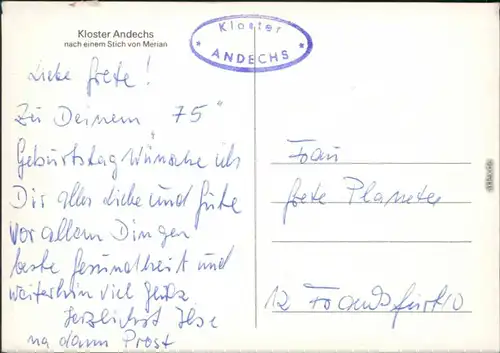 Kloster Andechs
nach einem Stich von Merian
Kloster
* ANDECHS *
Liebe Grete!
Zu Deinem 75"
Geburtstag Wünsche ich
Dir alles Liebe und Gute
vor allem Dingen
beste Gesundheit und
weiterhin viel
Herzlichst Ilse
na dann Prost
Frau
Grete
12 Frankfurt/O